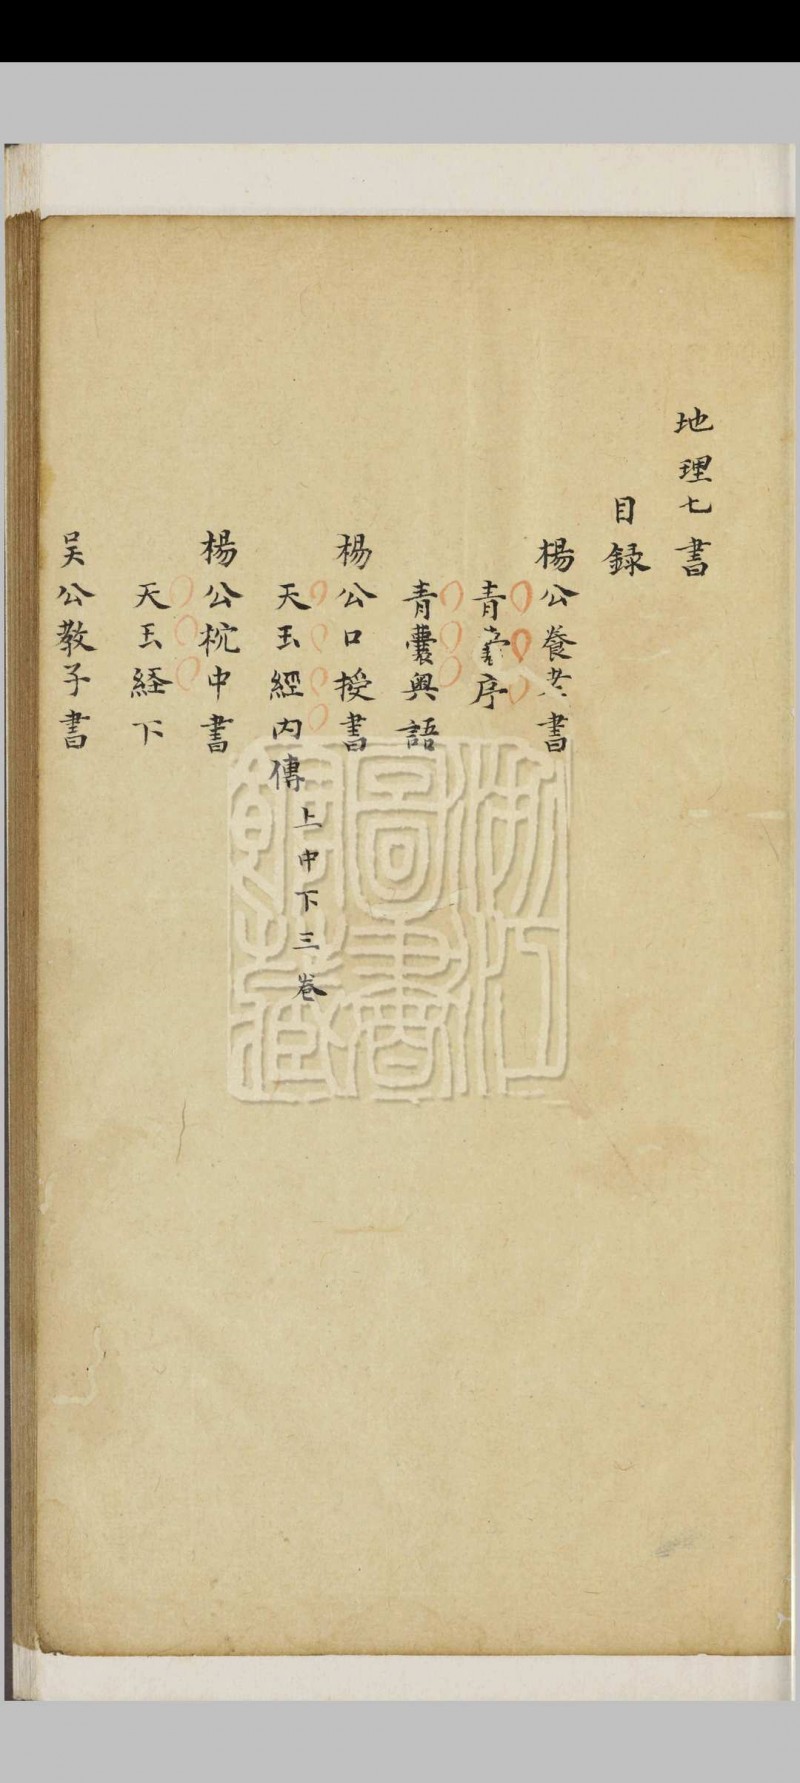 地理七書
目録
楊公養老書
青囊序
青囊奥語
楊公口授書
天玉經内傳上中下三卷
楊公枕中書
天玉経下
吳公教子書
浙江圖書館藏